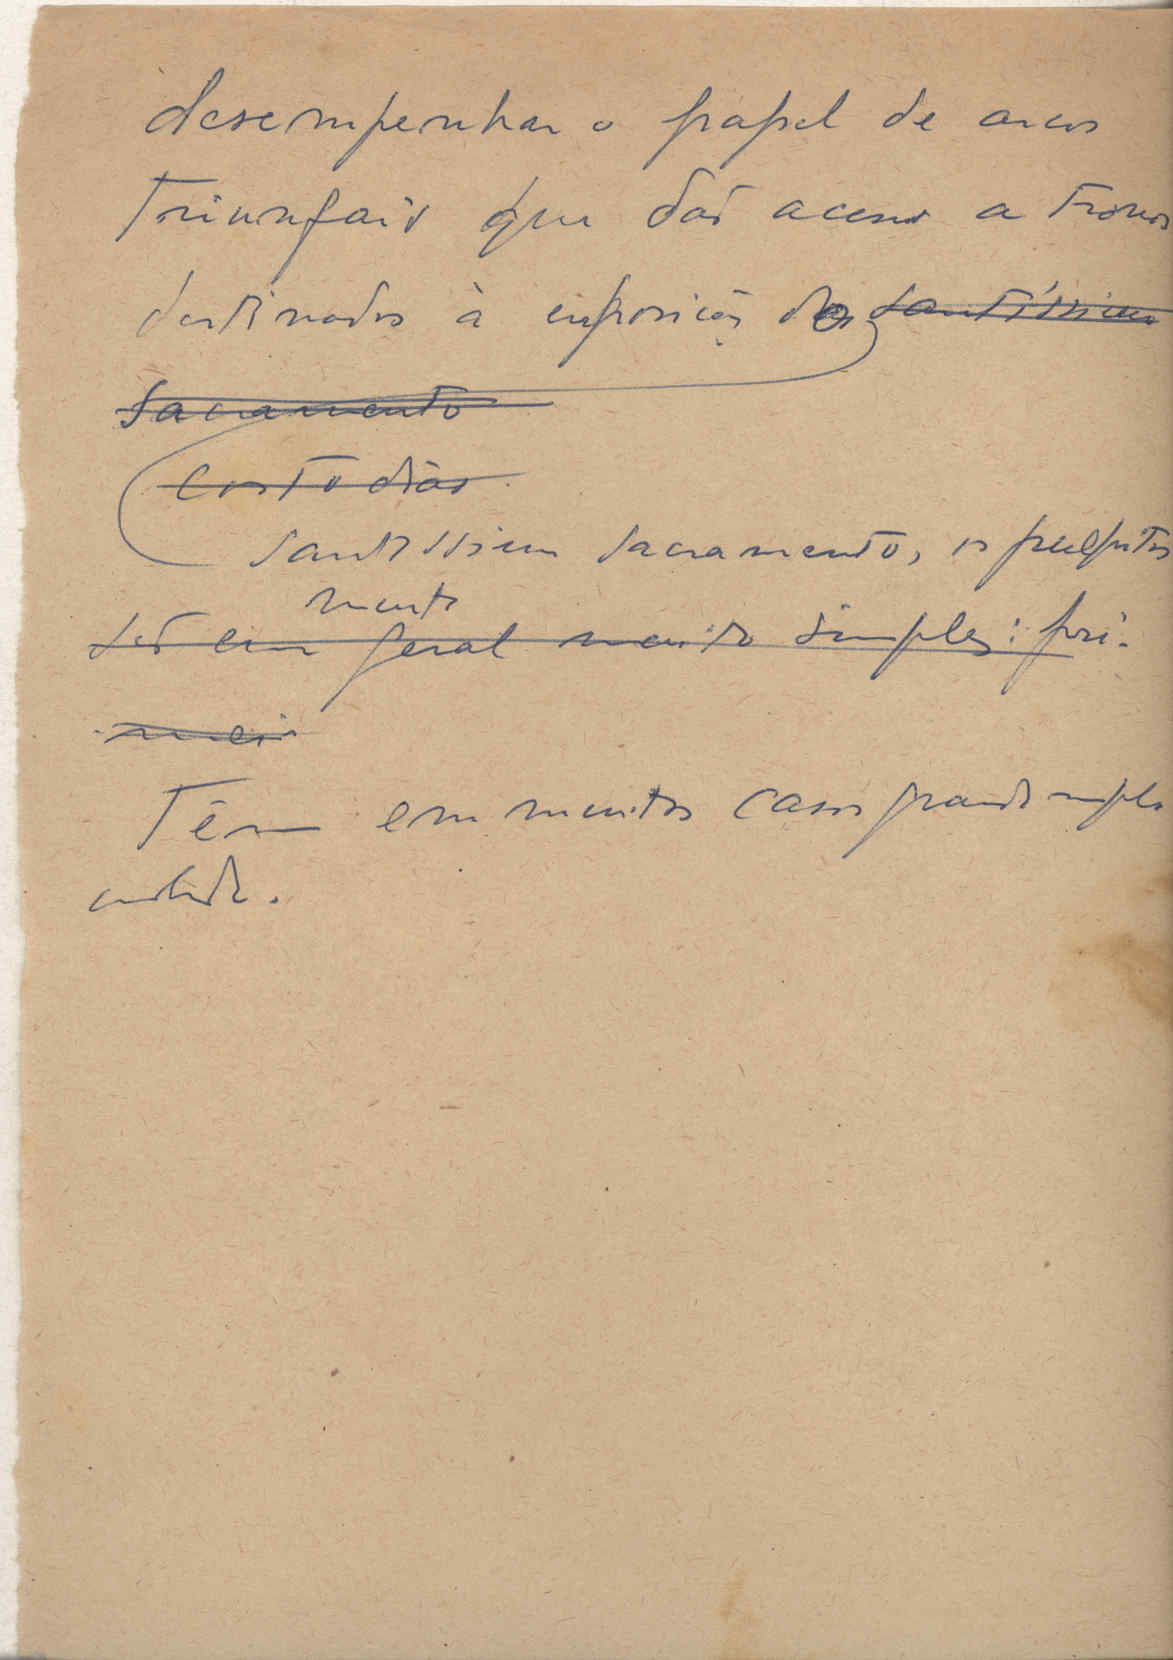 desempenhar o papel de arcos
triunfais que dão acesso a tronos
destinados à exposição do Santíssimo
Sacramento
Custodias
Santissimo Sacramento, os pulpitos
mente
são em geral muito simples: pri-
meir
Têm em muitos casos grande